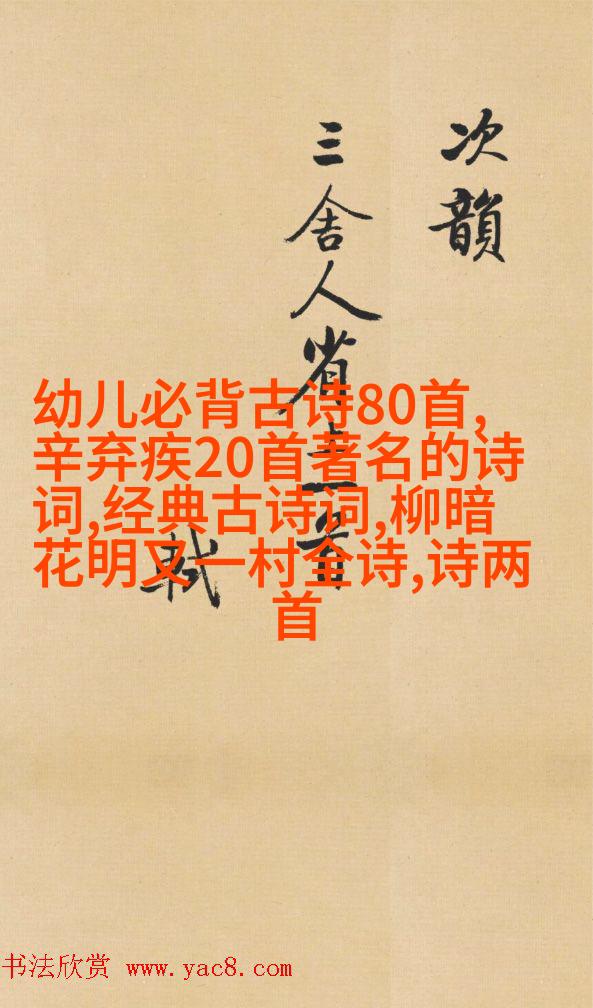 次韻
三舍人省上一首
軾
幼儿必背古诗80首,
辛弃疾20首著名的诗
词,经典古诗词,柳暗
花明又一村全诗,诗两
首
书法欣赏 www.yac8.com